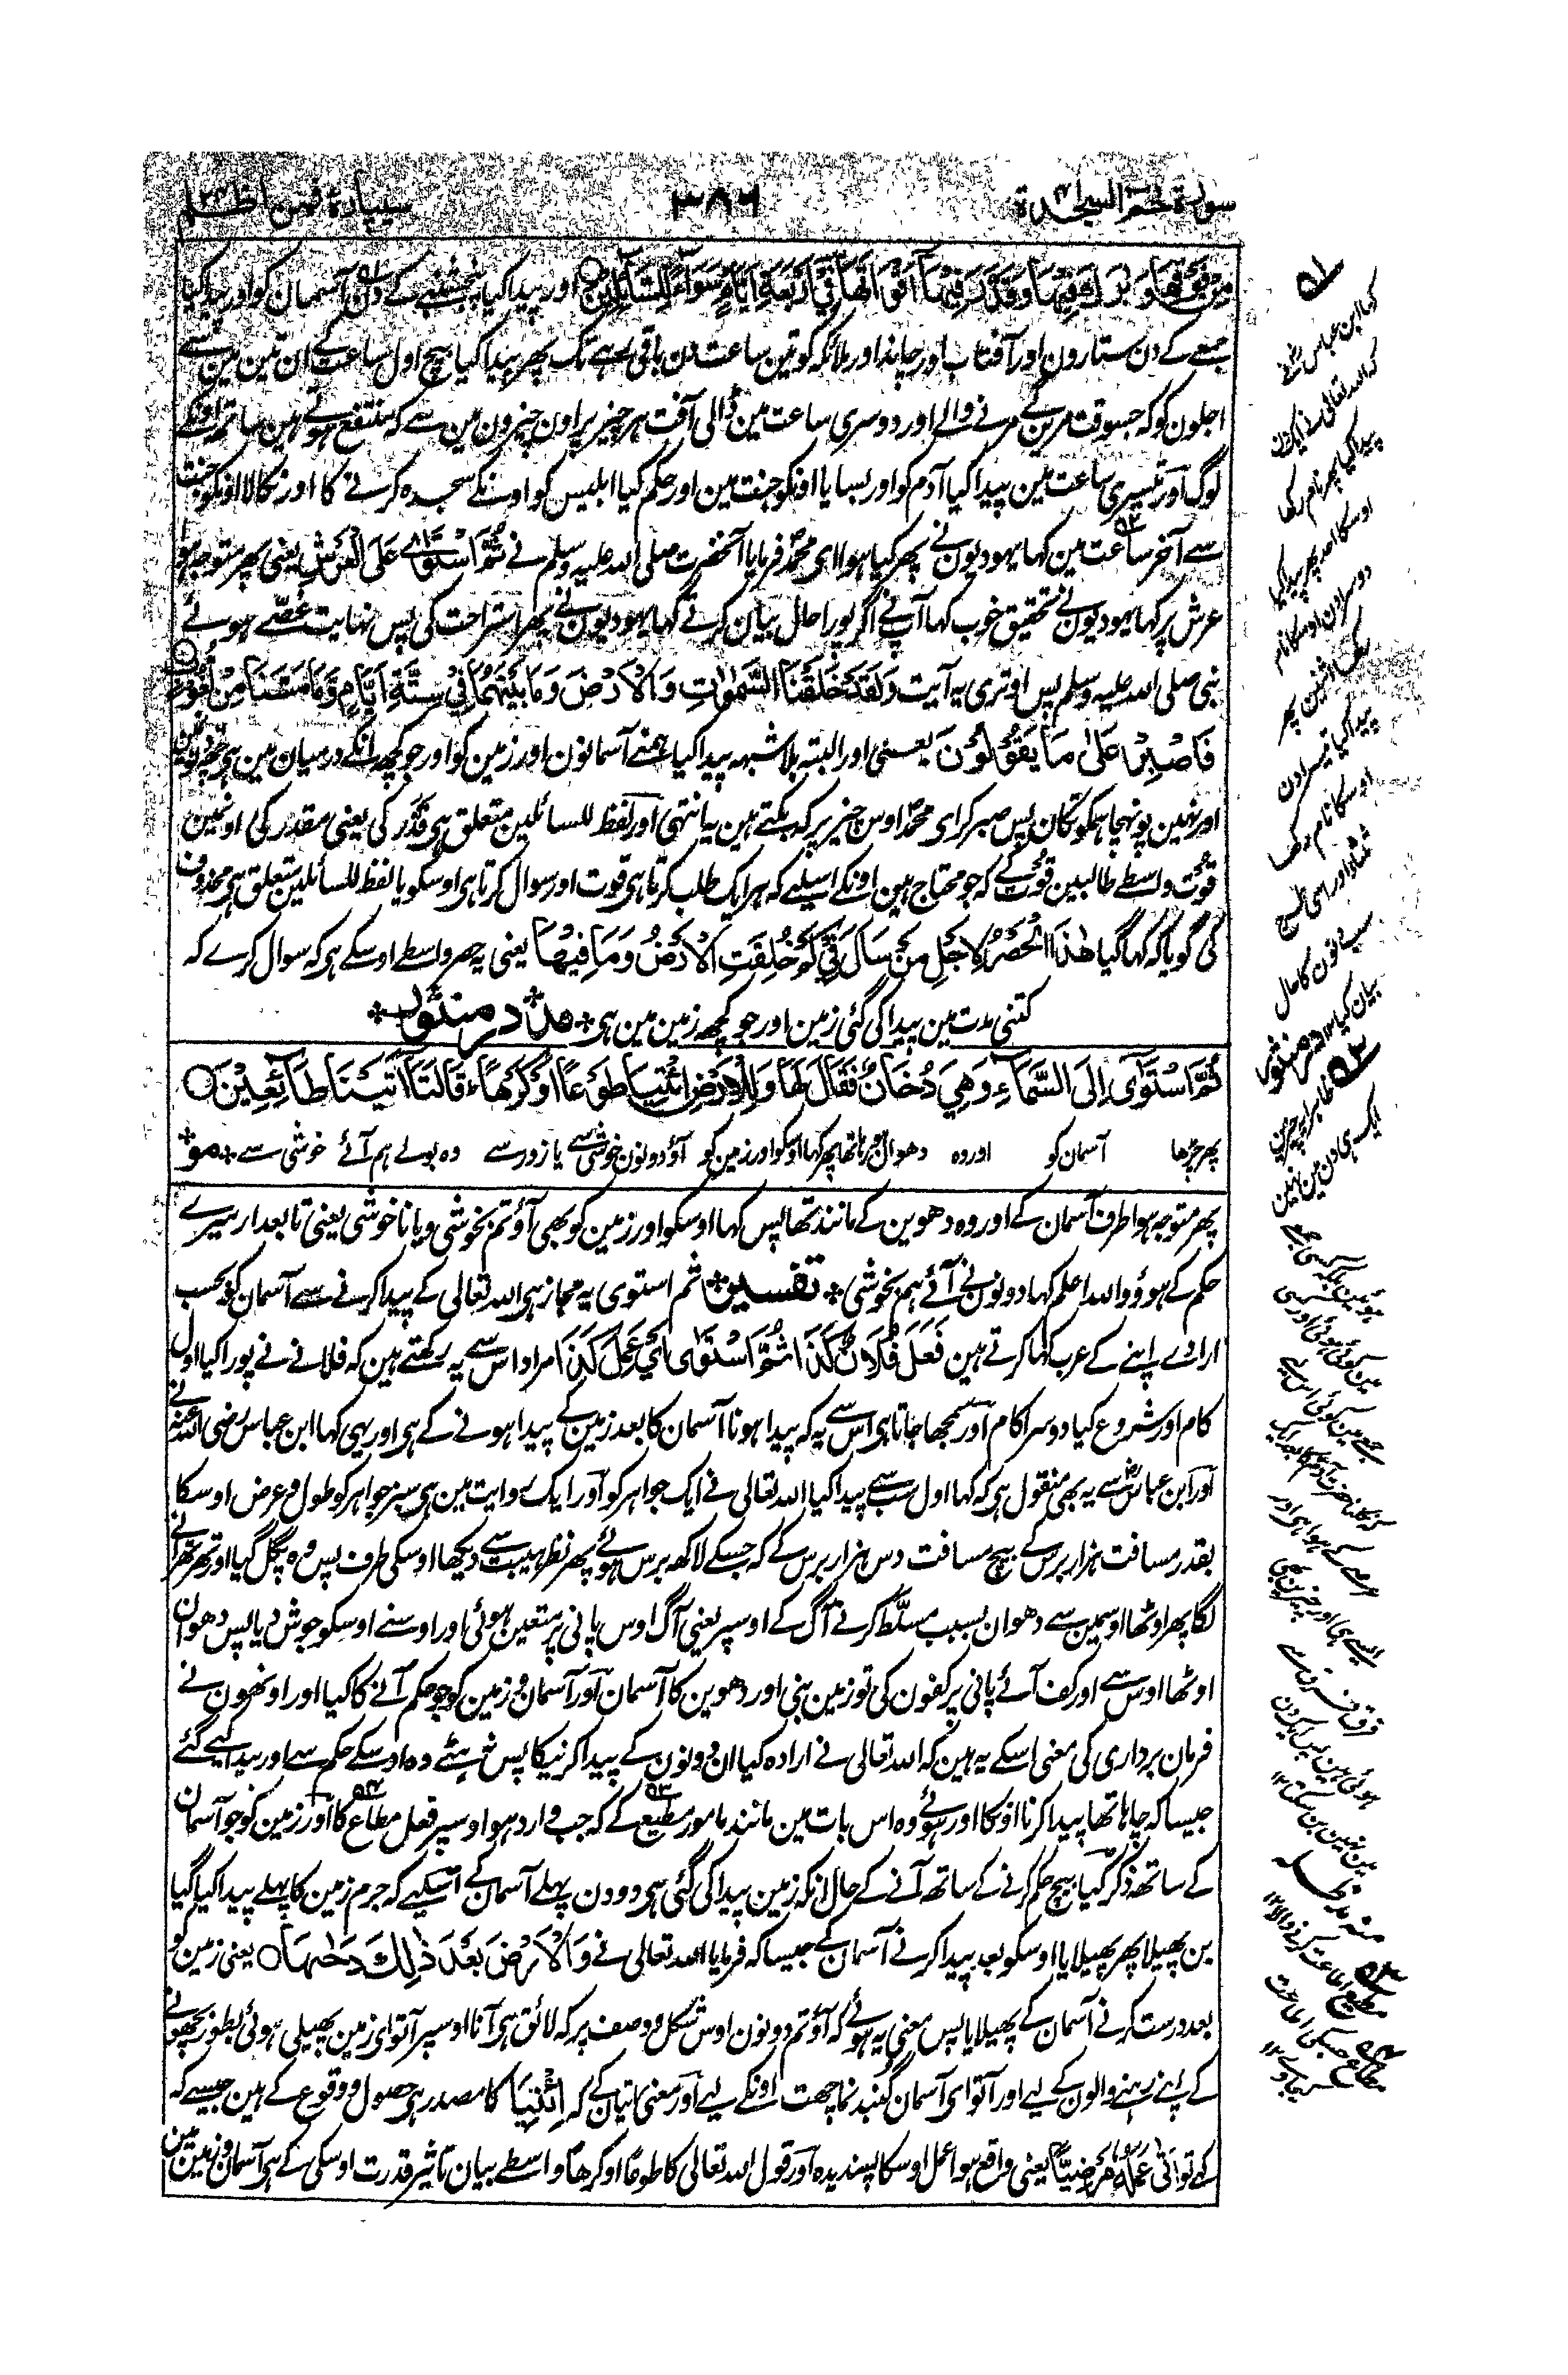 سورۃ حٰمٓ السجدۃ ۴۱
۳۸۶
سیپارہ فمن اظلم ۲۴
مِنْ فَوْقِهَا وَبٰرَكَ فِيْهَا وَقَدَّرَ فِيْهَا اَقْوَاتَهَا فِيْ اَرْبَعَةِ اَيَّامٍ سَوَآءً لِّلسَّآئِلِيْنَ ○ اور پیدا کیا پنجشنبے کے دن آسمان کو اور پیدا کیا
جمعے کے دن ستارون اور آفتاب اور چاند اور ملائکہ کو تین ساعت دن باقی رہے تک پھر پیدا کیا بیچ اول ساعت کے ان تین مین سے
اجلون کو کہ جسوقت مرین گے مرنے والے اور دوسری ساعت مین ڈالی آفت ہر چیز پر اون چیزون مین سے کہ منتفع ہوتے ہین ساتھ اونکے
لوگ اور تیسری ساعت مین پیدا کیا آدم کو اور بسایا اونکو جنت مین اور حکم کیا ابلیس کو اونکے سجدہ کرنے کا اور نکالا اونکو جنت
سے آخر ساعت مین کہا یہودیون نے پھر کیا ہوا ای محمد فرمایا آنحضرت صلی اللہ علیہ وسلم نے ثُمَّ اسْتَوٰى عَلَى الْعَرْشِ یعنی پھر متوجہ ہوا
عرش پر کہا یہودیون نے تحقیق خوب کہا آپنے اگر پورا حال بیان کرتے کہا یہودیون نے پھر استراحت کی پس نہایت غصے ہوئے
نبی صلی اللہ علیہ وسلم پس اوتری یہ آیت وَلَقَدْ خَلَقْنَا السَّمٰوٰتِ وَالْاَرْضَ وَمَا بَيْنَهُمَا فِيْ سِتَّةِ اَيَّامٍ وَّمَا مَسَّنَا مِنْ لُّغُوْبٍ ○
فَاصْبِرْ عَلٰى مَا يَقُوْلُوْنَ یعنی اور البتہ بلا شبہہ پیدا کیا ہمنے آسمانون اور زمین کو اور جو کچھ انکے درمیان مین ہی چھ دن مین
اور نہین پونہچا ہمکو تکان پس صبر کر ای محمد اوس چیز پر کہ بکتے ہین یہ انتہی اور لفظ للسائلین متعلق ہی قدّر کی یعنی مقدر کی اونمین
قوت واسطے طالبین قوت کے کہ جو محتاج ہین اونکے اسلیے کہ ہر ایک طلب کرتا ہی قوت اور سوال کرتا ہی اوسکو یا لفظ للسائلین متعلق ہی محذوف
کی گویا کہ کہا گیا هٰذَا الْحَصْرُ لِاَجْلِ مَنْ سَاَلَ فِيْ كَمْ خُلِقَتِ الْاَرْضُ وَمَا فِيْهَا یعنی یہ حصر واسطے اوسکے ہی کہ سوال کرے کہ
کتنی مدت مین پیدا کی گئی زمین اور جو کچھ زمین مین ہی ٭ در منثور ٭
ثُمَّ اسْتَوٰٓى اِلَى السَّمَآءِ وَهِيَ دُخَانٌ فَقَالَ لَهَا وَلِلْاَرْضِ ائْتِيَا طَوْعًا اَوْ كَرْهًا ؕ قَالَتَآ اَتَيْنَا طَآئِعِيْنَ ○
پھر چڑھا آسمان کو اور وہ دھوان ہو رہا تھا پھر کہا اوسکو اور زمین کو آؤ دونون خوشی سے یا زور سے وہ بولے ہم آئے خوشی سے ٭ مو ٭
پھر متوجہ ہوا طرف آسمان کے اور وہ دھوین کے مانند تھا پس کہا اوسکو اور زمین کو بھی آؤ تم بخوشی و یا ناخوشی یعنی تابعدار میرے
حکم کے ہوؤ واللہ اعلم کہا دونون نے آئے ہم بخوشی ٭ تفسیر ٭ ثم استوی یہ مجاز ہی اللہ تعالی کے پیدا کرنے سے آسمان کو بحسب
ارادے اپنے کے عرب کہا کرتے ہین فَعَلَ فُلَانٌ كَذَا ثُمَّ اسْتَوٰى اِلٰى عَمَلِ كَذَا مراد اس سے یہ رکھتے ہین کہ فلانے نے پورا کیا اول
کام اور شروع کیا دوسرا کام اور سمجھا جاتا ہی اس سے یہ کہ پیدا ہونا آسمان کا بعد زمین کے پیدا ہونے کے ہی اور یہی کہا ابن عباس رضی اللہ عنہ نے
اور ابن عباسؓ سے یہ بھی منقول ہی کہ کہا اول سب سے پیدا کیا اللہ تعالی نے ایک جواہر کو اور ایک روایت مین ہی سبز جواہر کو طول و عرض اوسکا
بقدر مسافت ہزار برس کے بیچ مسافت دس ہزار برس کے کہ جسکے لاکھ برس ہوئے پھر نظر ہیبت سے دیکھا اوسکی طرف پس وہ پگل گیا اور تھرتھرانے
لگا پھر اوٹھا اوسمین سے دھوان بسبب مسلّط کرنے آگ کے اوسپر یعنی آگ اوس پانی پر متعین ہوئی اور اوسنے اوسکو جوش دیا پس دھوان
اوٹھا اوس سے اور کف آئے پانی پر کفون کی تو زمین بنی اور دھوین کا آسمان اور آسمان و زمین کو جو حکم آنے کا کیا اور اونھون نے
فرمان برداری کی معنی اسکے یہ ہین کہ اللہ تعالی نے ارادہ کیا ان دونون کے پیدا کرنیکا پس نہ ہٹے وہ اوسکے حکم سے اور پیدا کیے گئے
جیسا کہ چاہا تھا پیدا کرنا اونکا اور ہوئے وہ اس بات مین مانند مامور مطیع کے کہ جب وارد ہو اوسپر فعل مطاع کا اور زمین کو جو آسمان
کے ساتھ ذکر کیا بیچ حکم کرنے کے ساتھ آنے کے حال انکہ زمین پیدا کی گئی ہی دو دن پہلے آسمان کے اسلیے کہ جرم زمین کا پہلے پیدا کیا گیا
بن پھیلا پھر پھیلایا اوسکو بعد پیدا کرنے آسمان کے جیسا کہ فرمایا اللہ تعالی نے وَالْاَرْضَ بَعْدَ ذٰلِكَ دَحٰىهَا ○ یعنی زمین کو
بعد درست کرنے آسمان کے پھیلایا پس معنی یہ ہوئے کہ آؤ تم دونون اوس شکل و وصف پر کہ لائق ہی آنا اوسپر آ تو ای زمین پھیلی ہوئی بطور بچھونے
کے اپنے رہنے والون کے لیے اور آ تو ای آسمان گنبد نما چھت اونکے لیے اور معنی اتیان کے کہ اِئْتِيَا کا مصدر ہی حصول و وقوع کے ہین جیسے کہ
کہے تو اَتٰى عَمَلُهٗ مَرْضِيًّا یعنی واقع ہوا عمل اوسکا پسندیدہ اور قول اللہ تعالی کا طوعًا او کرھًا واسطے بیان تاثیر قدرت اوسکی کے ہی آسمان و زمین مین
کہا ابن عباس نے
کہ اللہ تعالی نے ایک دن
پیدا کیا پھر نام رکھا
اوسکا احد پھر پیدا کیا
دوسرا دن اوسکا نام
رکھا اثنین پھر
پیدا کیا تیسرا دن
اوسکا نام رکھا
ثلثا اور اسی طرح
سب دنون کا حال
بیان کیا ۱۲ در منثور
ظاہرا یہ چیزین
ایک ہی دن مین نہین
ہوئین بلکہ کسی جمعے
مین کوئی ہوئی اور کسی
جمعے مین کوئی
مطیع اطاعت کرنے والا ۱۲
مطاع جسکی اطاعت
کیجاوے ۱۲